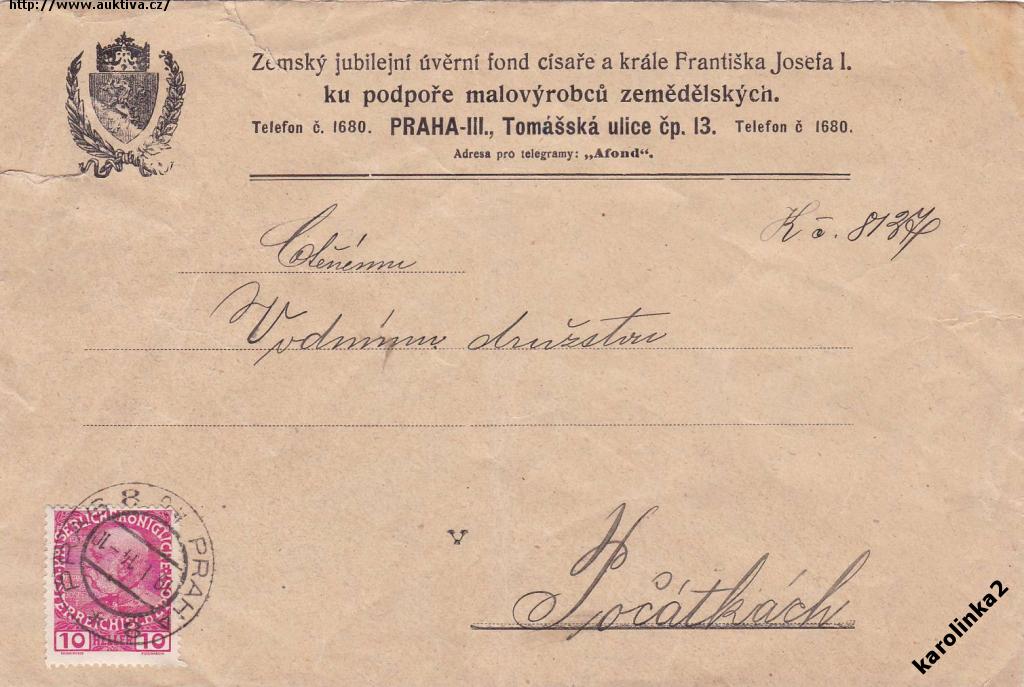 http://www.auktiva.cz/
Zemský jubilejní úvěrní fond císaře a krále Františka Josefa I.
ku podpoře malovýrobců zemědělských.
Telefon č. 1680. PRAHA-III., Tomášská ulice čp. 13. Telefon č 1680.
Adresa pro telegramy: „Afond“.
K č. 8137
Ctěnému
Vodnímu družstvu
v
Počátkách
PRAG PRAHA
8
10 10
karolinka2